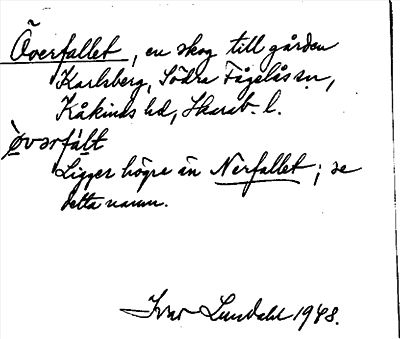 Överfallet, en skog till gården
Karlsberg, Södra Fågelås sn,
Kåkinds hd, Skarab. l.
òvərfál̲t
Ligger högre än Nerfallet; se
detta namn.
Ivar Lundahl 1948.